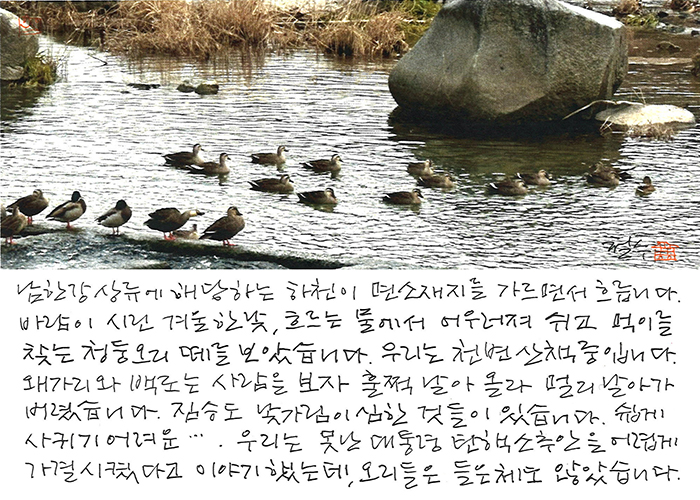 남한강 상류에 해당하는 하천이 면소재지를 가르면서 흐릅니다.
바람이 시린 겨울 한낮, 흐르는 물에서 어우러져 쉬고 먹이를
찾는 청둥오리 떼를 보았습니다. 우리는 천변 산책중입니다.
왜가리와 백로는 사람을 보자 훌쩍 날아 올라 멀리 날아가
버렸습니다. 짐승도 낯가림이 심한 것들이 있습니다. 쉽게
사귀기 어려운 … . 우리는 못난 대통령 탄핵소추안을 어렵게
가결시켰다고 이야기했는데, 오리들은 들은체도 않았습니다.